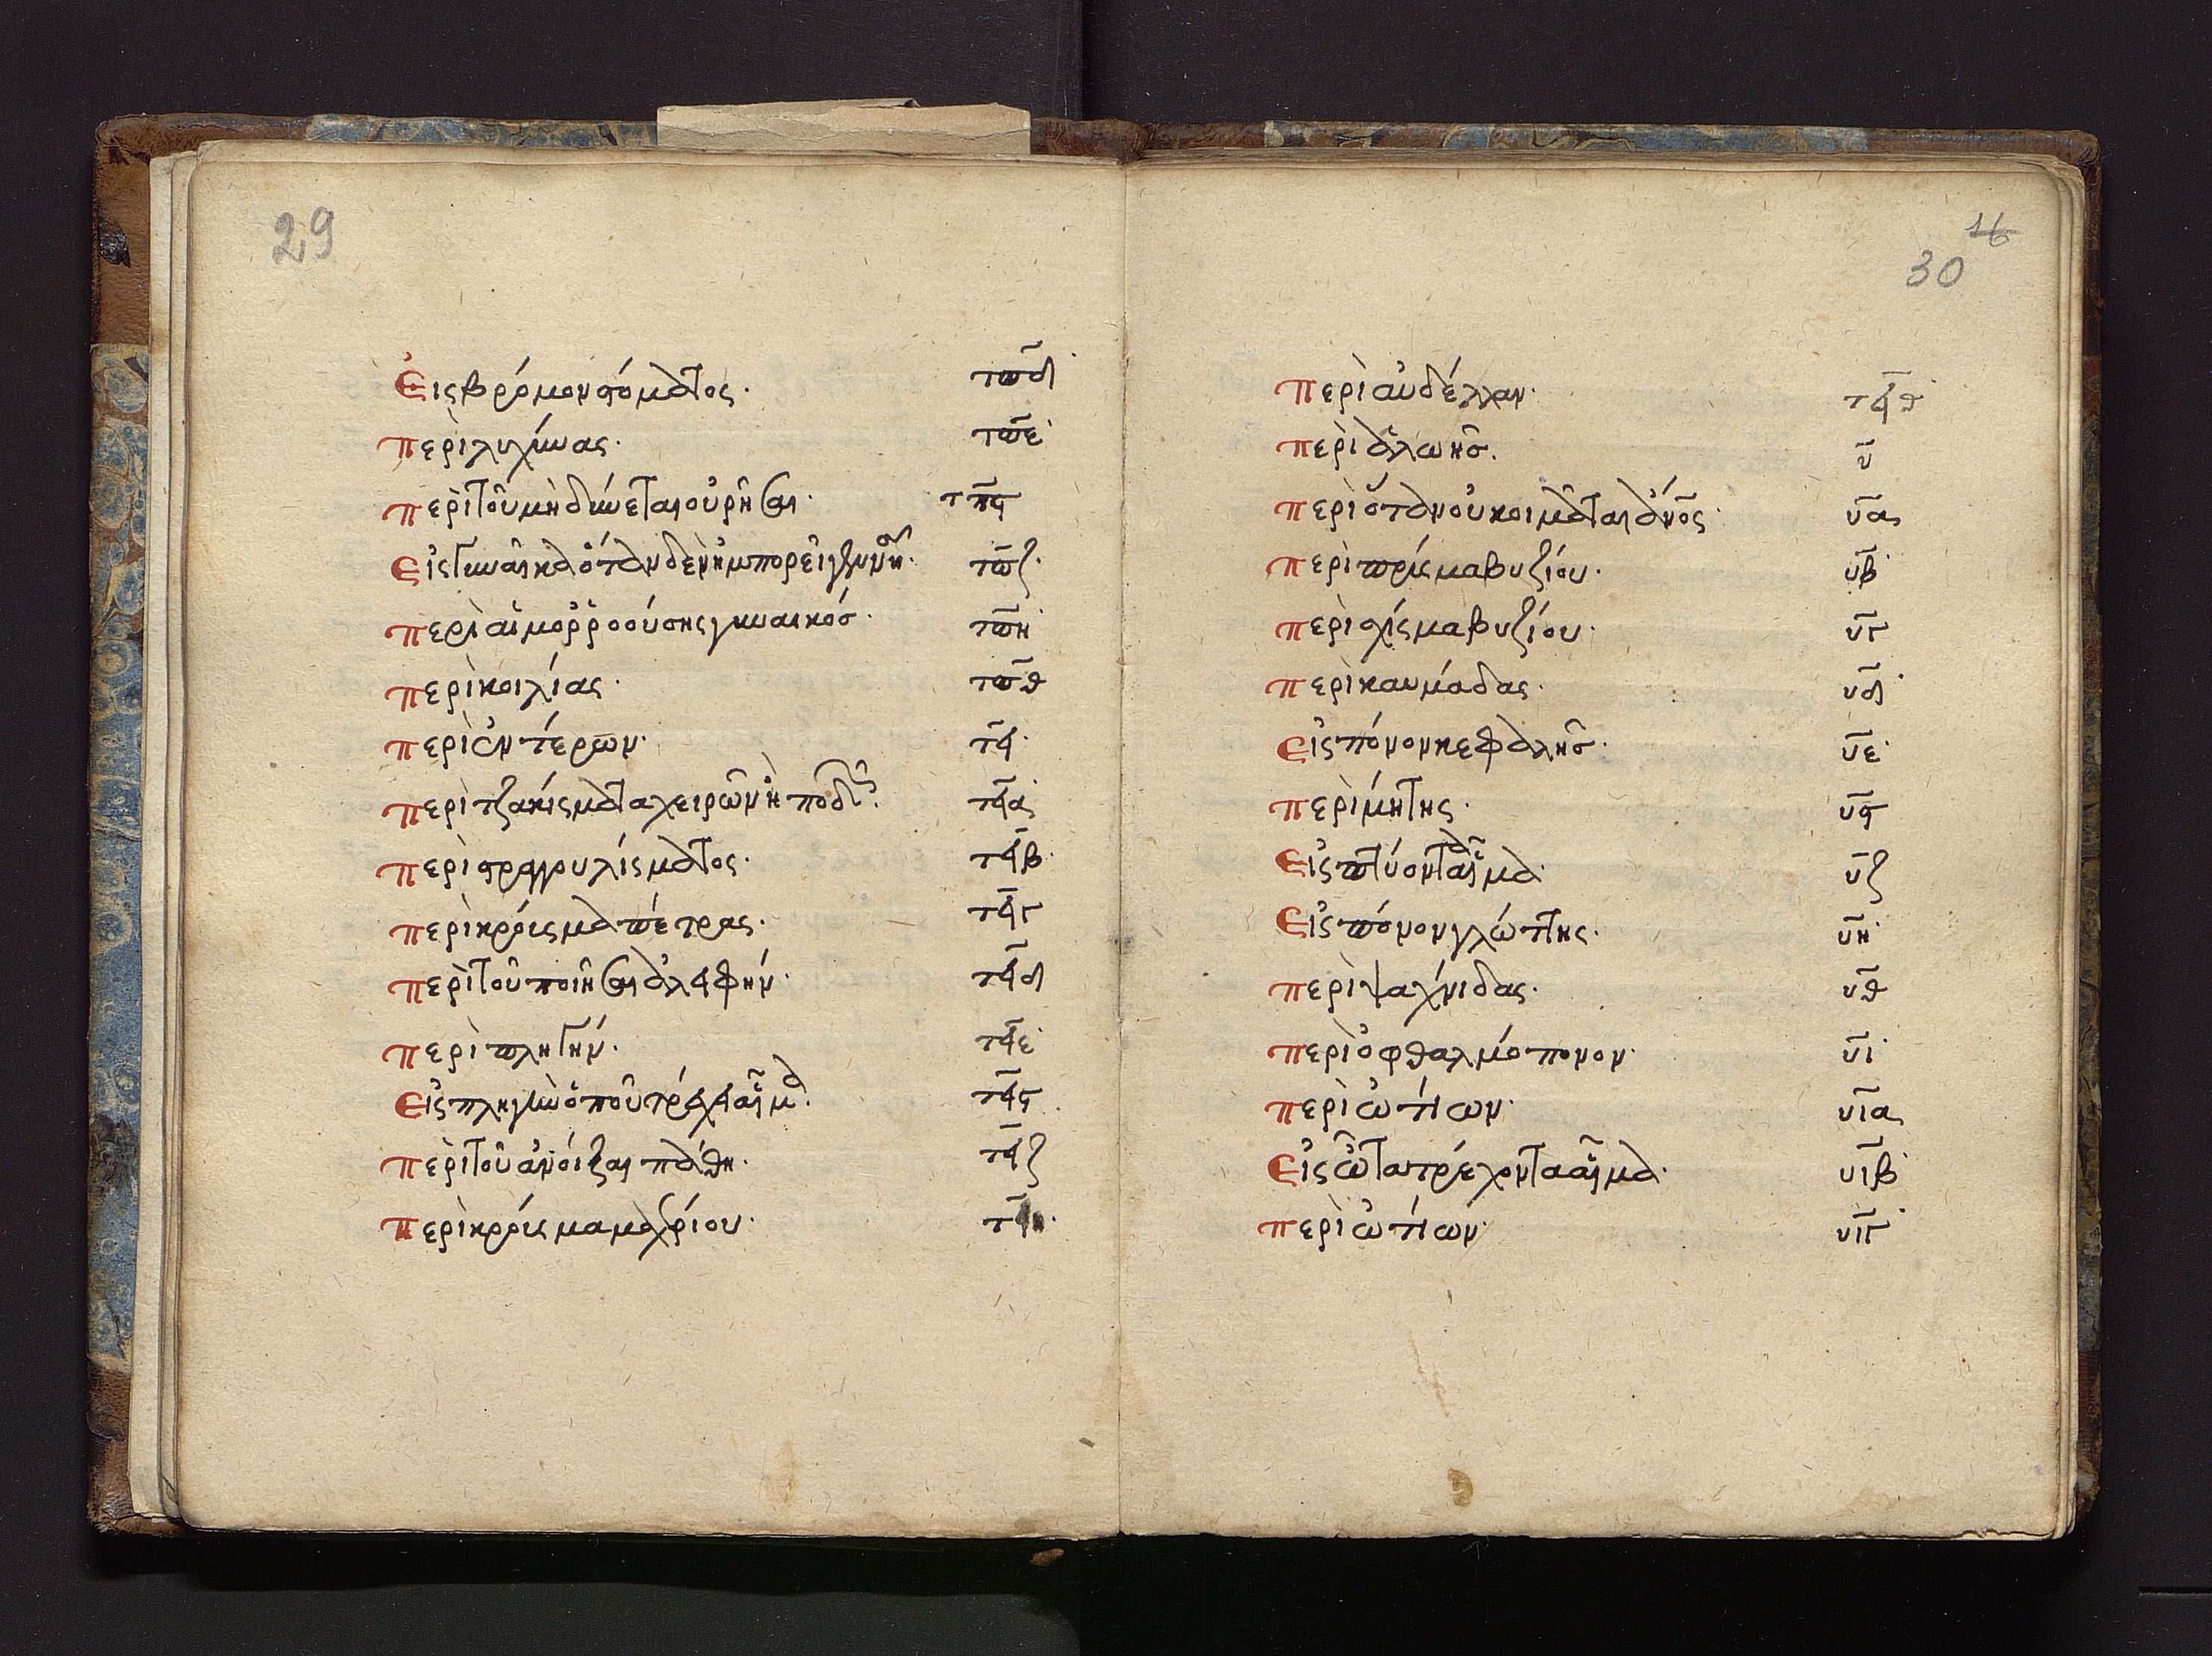 29
Εἰς βρόμον στόματος. τπδ
Περὶ λυχήνας. τπε
Περὶ τοῦ μὴ δύνεται οὐρῆσαι. τπς
Εἰς γυναῖκα ὁταν δεν ἠμπορεῖ γεννῆ τπζ
Περὶ αἱμορροούσης γυναικός. τπη
Περὶ κοιλίας. τπθ
Περὶ ἐντέρων. τϟ
Περὶ τζακίσματα χειρῶν ἢ ποδῶν. τϟα
Περὶ στραγγουλίσματος. τϟβ
Περὶ κρούσμα πέτρας. τϟγ
Περὶ τοῦ ποιῆσαι ἀλαφην. τϟδ
Περὶ πληγήν. τϟε
Εἰς πληγὴν ὁποῦ τρέχει αἷμα. τϟς
Περὶ τοῦ ἀνοίξαι πάθη. τϟζ
Περὶ κρούσμα μαχαιρίου. τϟη
16
30
Περὶ αὐδέλλαν. τϟθ
Περὶ ἅλωσης. υ
Περὶ ὅταν οὐ κοιμᾶται ἀνος υα
Περὶ πρίσμα βυζίου. υβ
Περὶ σχίσμα βυζίου. υγ
Περὶ καυμάδας. υδ
Εἰς πόνον κεφαλῆς. υε
Περὶ μύτης. υς
Εἰς πτύοντα αἷμα. υζ
Εἰς πόνον γλώττης. υη
Περὶ λαχνιδας. υθ
Περὶ ὀφθαλμόπονον. υι
Περὶ ὠτίων. υια
Εἰς ὦτα τρέχοντα αἷμα. υιβ
Περὶ ὠτίων. υιγ